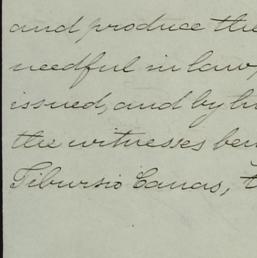 and produce the
needful in law,
issued, and by
the witnesses
Tibursio Canas,